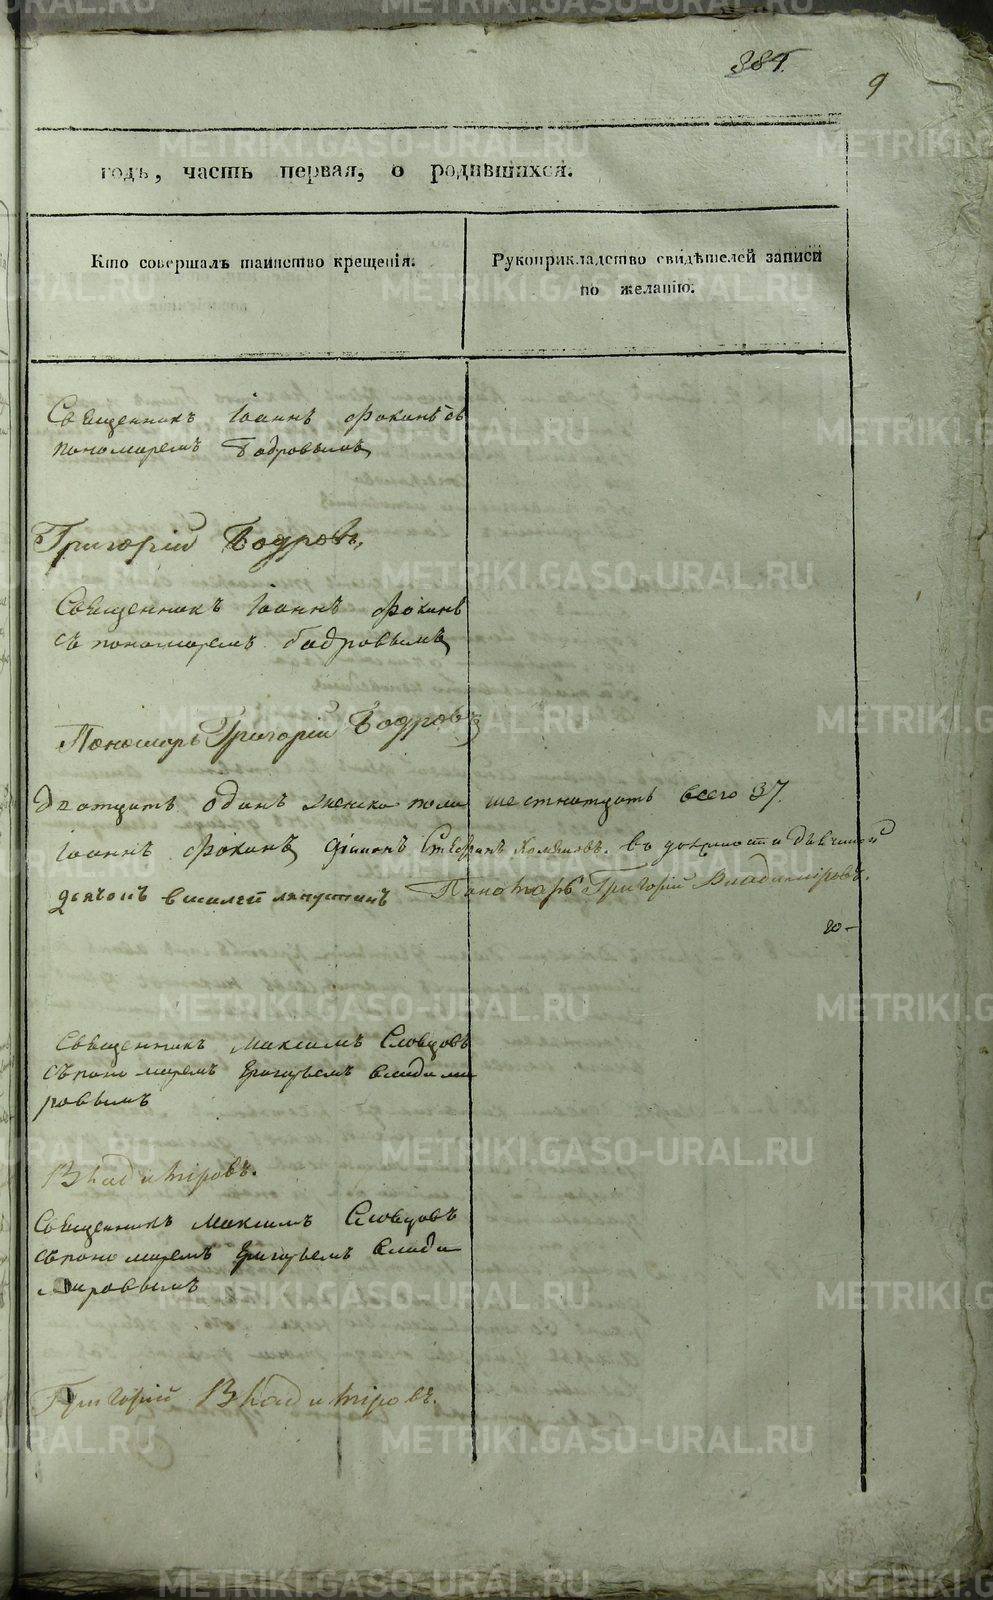 384.
9
годъ, часть первая, о родившихся.
Кто совершалъ таинство крещенія.
Рукоприкладство свидѣтелей записи
по желанію.
Священникъ Іоаннъ Фокинъ съ
пономаремъ Бодровымъ
Григорій Бодровъ,
Священникъ Іоаннъ Фокинъ
съ пономаремъ Бодровымъ
Пономарь Григорій Бодровъ
дватцать одинъ женска пола шестнатцать всего 37.
Іоаннъ Фокинъ діаконъ Стефанъ въ должности
дьячкъ Василей Пономарь Григорій Владиміровъ.
Священникъ Максимъ Словцовъ
съ пономаремъ Григорьемъ Влади
міровымъ
Владиміровъ.
Священникъ Максимъ Словцовъ
съ пономаремъ Григорьемъ Влади
міровымъ
Григорій Владиміровъ.
METRIKI.GASO-URAL.RU